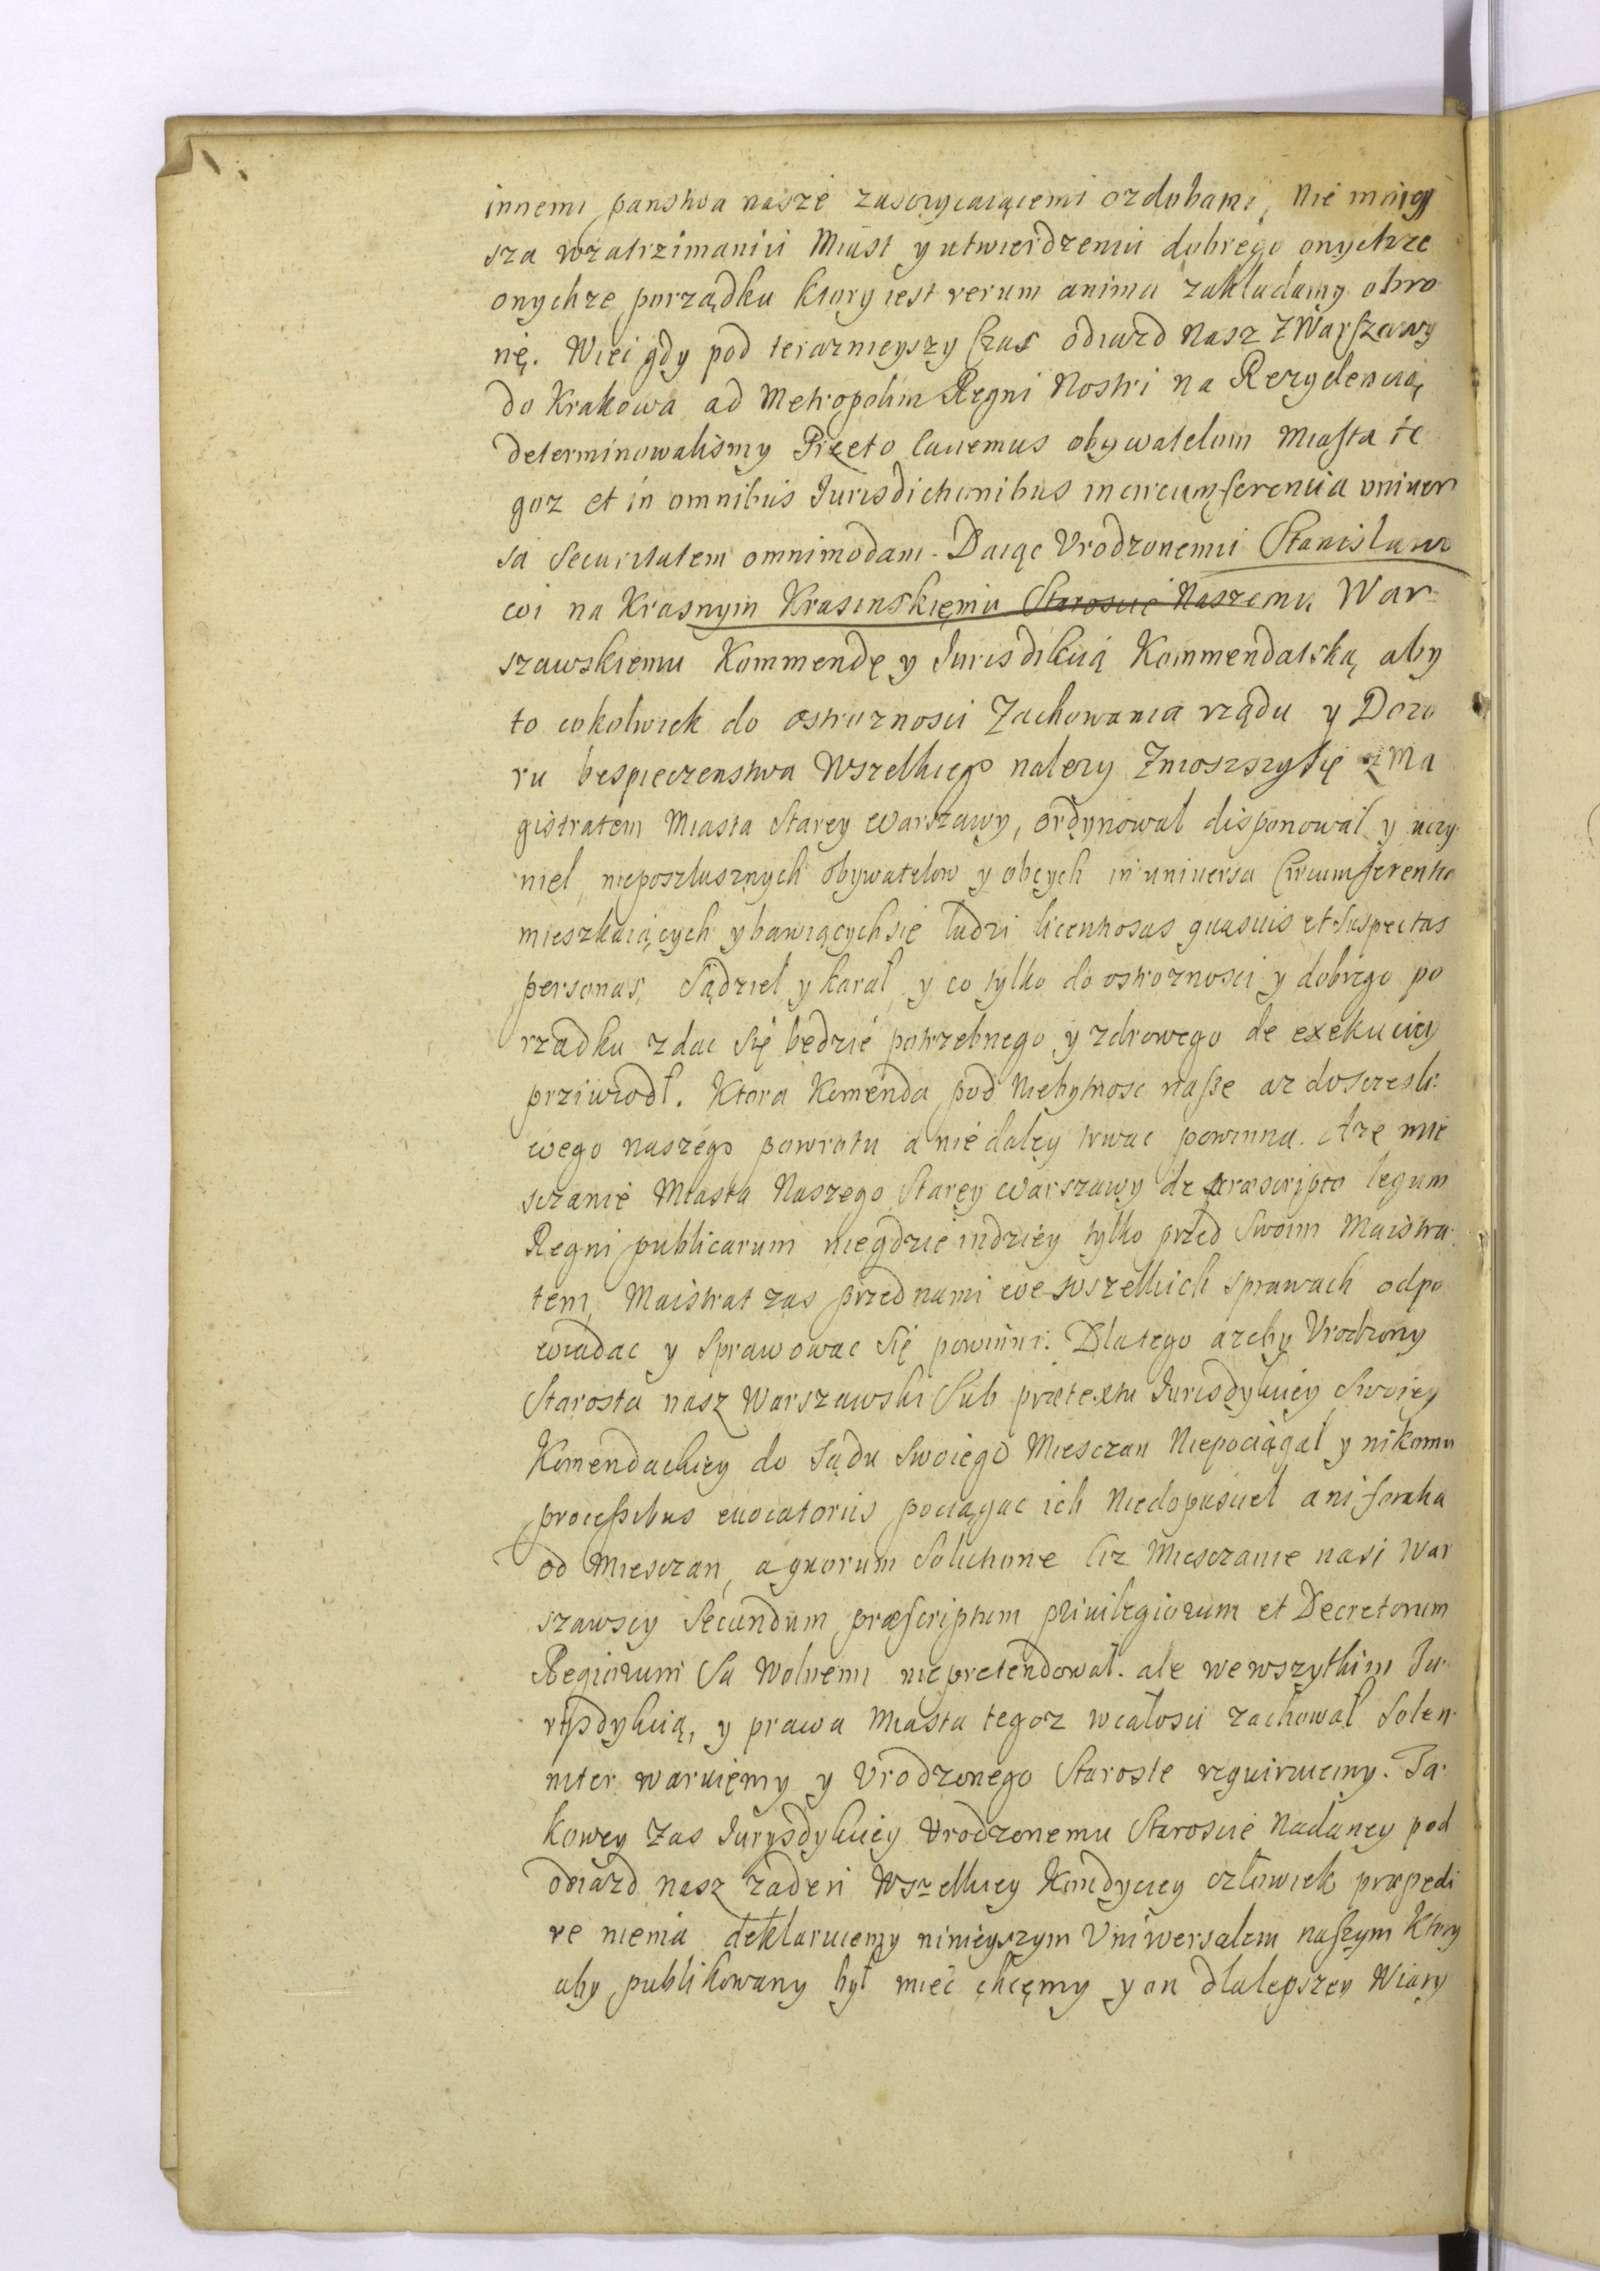 innemi panstwa nasze zasczycaiącemi ozdobami, Nie mniey
sza wzatrzimaniu Miast y utwierdzeniu dobrego onychze
onychze porządku ktory iest rerum anima zakładamy obro
nę. Więc gdy pod terazmieyszy Czas odiazd Nasz Z Warszawy
do Krakowa ad Metropolim Regni Nostri na Rezydencią
determinowalismy Przeto Cauemus obywatelom Miasta te
goz et in omnibus Jurisdictionibus incircumferencia vniuer
sa Securitatem omnimodam. Daiąc Vrodzonemu Stanisławo
wi na Krasnym Krasinskięmu Staroscie Naszemu War=
szawskiemu Kommendę y Jurisdikcią Kommendatską aby
to cokolwiek do ostroznosci Zachowania rządu y Dozo
ru bespieczenstwa Wszelkiego nalezy Znioszszysię z Ma
gistratem Miasta Starey Warszawy, ordynował disponował y uczy
nieł nieposzłusznych obywatelow y obcych in uniuersa Circumferentia
mieszkaiących y bawiącychsie ludzi licentiosas quasuis et Suspectas
personas, Sądzieł y karał y co tylko do ostroznosci y dobrego po
rzadku zdac Się będzie potrzebnego y zdrowego de exekuciey
prziwiodł. Ktora Komenda pod Niebytnosc nasze az dosczesli:
wego naszego powrotu a nie daley trwac powinna. A ze mie
sczanie Miasta Naszego Starey Warszawy de præscripto legum
Regni publicarum niegdzie indziey tylko przed Swoim Maistra
tem, Maistrat zas przed nami we wszelkich sprawach odpo
wiadac y Sprawowac Się powinni. Dlatego azeby Vrodzony
Starosta nasz Warszawski Sub prætextu Jurisdykciey Swoiey
Komendackiey do Sądu Swoiego Miesczan Niepociągał y nikomu
processibus euocatoriis pociągac ich Niedopusciel ani
od Miesczan, a quorum Solutione Ciz Miesczanie nasi War
szawscy Secundum præscriptum priuilegiorum et Decretorum
Regiorum Są Wolnemi niepretendował. ale wewszytkim Ju-
rysdykcią, y prawa Miasta tegoz wcałosci zachował Solen-
niter waruięmy y Vrodzonego Staroste requiruiemy. Ta-
kowey Zas Jurysdykciey Vrodzonemu Staroscie Nadaney pod
odiazd nasz zaden Wszelkiey Kondyciey człowiek præpedi
re niema deklaruiemy ninieyszym Vniwersałem naszym Ktory
aby publikowany był miec chcęmy y on dlalepszey Wiary